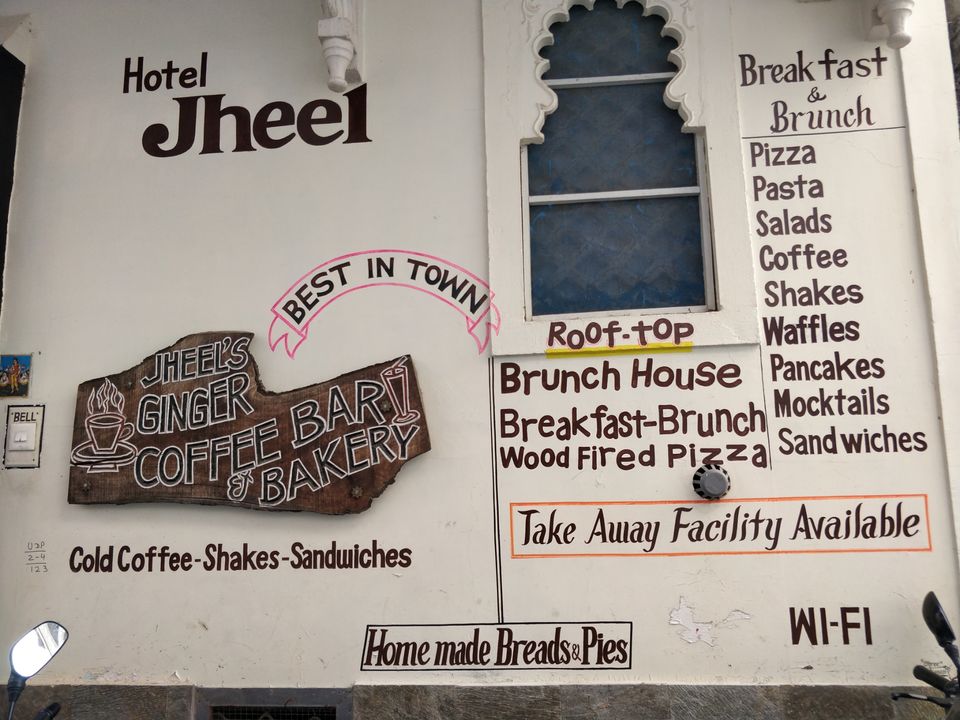 Hotel
Jheel
BEST IN TOWN
JHEEL'S
GINGER
COFFEE BAR
& BAKERY
'BELL'
UDP
2-4
123
Cold Coffee-Shakes-Sandwiches
Roof-top
Brunch House
Breakfast-Brunch
Wood Fired Pizza
Breakfast
&
Brunch
Pizza
Pasta
Salads
Coffee
Shakes
Waffles
Pancakes
Mocktails
Sandwiches
Take Away Facility Available
Home made Breads & Pies
WI-FI